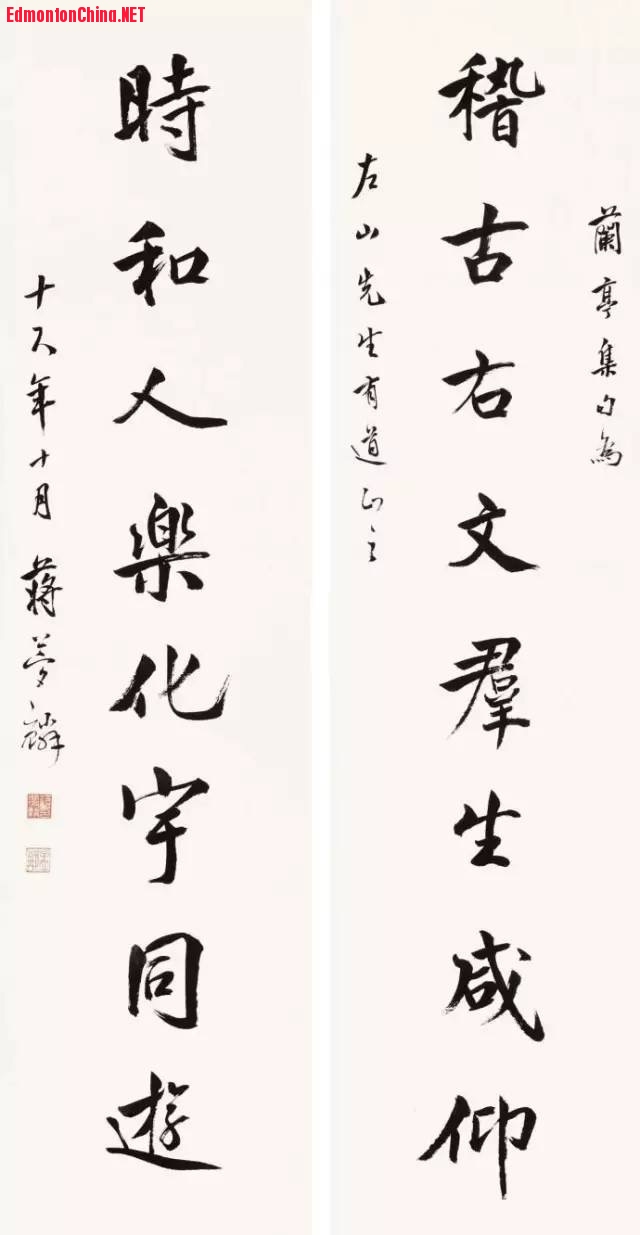 EdmontonChina.NET
蘭亭集句為
稽古右文羣生咸仰
左山先生有道正之
時和人樂化宇同遊
十八年十月蔣夢麟